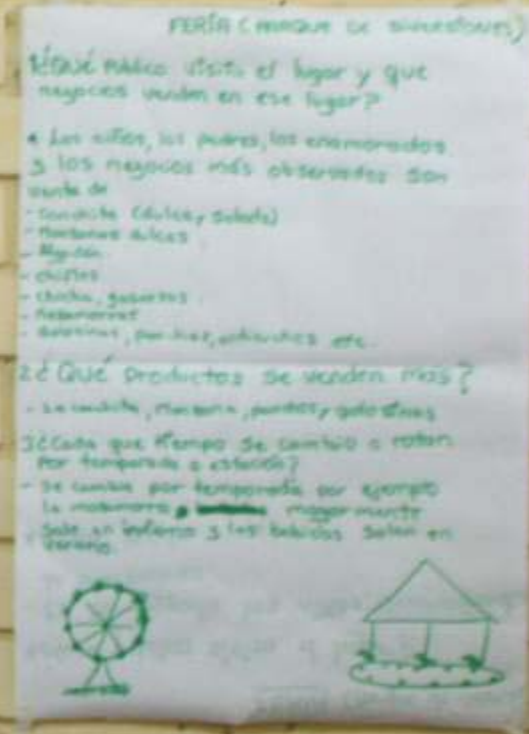 FERIA (PARQUE DE DIVERSIONES)
1¿QUÉ Público visita el lugar y que
negocios venden en ese lugar?
Los niños, los padres, los enamorados
y los negocios más observados son
venta de
- Canchita (dulce y salada)
- Manzanas dulces
- Algodón
- chifles
- chicha, gaseosas
- Mazamorras
- Golosinas, etc.
2¿QUÉ productos se venden más?
- La canchita, Manzana, y golosinas
3¿Cada que tiempo se cambia o rotan
Por temporada o estación?
- Se cambia por temporada por ejemplo
la mazamorra mayormente
Sale en invierno y las bebidas salen en
verano.